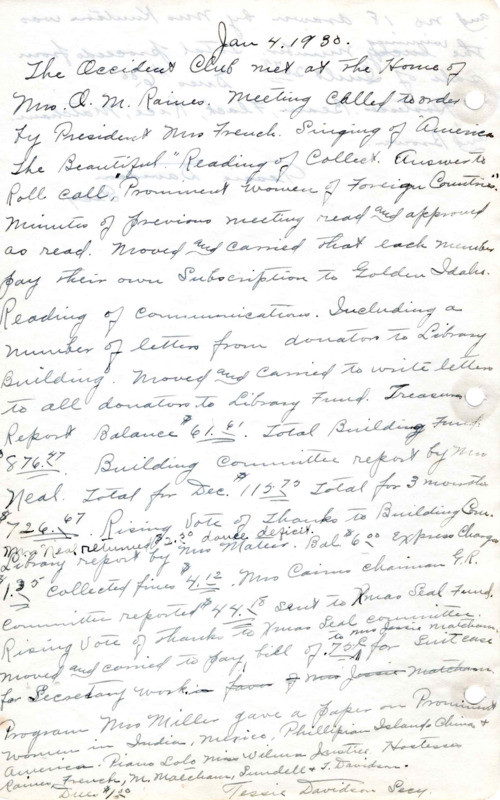 Jan 4. 1930.
The Occident Club met at the Home of
Mrs. O. M. Raines. Meeting called to order
by President Mrs French. Singing of "America
The Beautiful" Reading of Collect. Answer to
Roll call, "Prominent Women of Foreign Countries".
Minutes of previous meeting read and approved
as read. Moved and carried that each member
pay their own Subscription to Golden Idaho.
Reading of communications. Including a
number of letters from donators to Library
Building. Moved and carried to write letters
to all donators to Library Fund. Treasurers
Report Balance $61.61. Total Building Fund
$876.47. Building Committee report by Mrs
Neal. Total for Dec. $115.75 Total for 3 months
$726.67 Rising Vote of Thanks to Building Com.
Mrs Neal returned $2.30 dance deficit.
Library report by Mrs Mateer. Bal $6.00 Express Charges
$1.35 collected fines $4.12. Mrs Cairns chairman G.R.
Committee reported $44.10 sent to Xmas Seal Fund.
Rising Vote of thanks to Xmas Seal committee.
to Mrs Jessie Matcham
moved and carried to pay bill of .75¢ for Suit case
for Secretary work in favor of Mrs Jessie Matcham
Program Mrs Miller gave a paper on Prominent
Women in India, Mexico, Phillipian Islands China &
America. Piano Solo Miss Wilma Jantree. Hostesses
Raines, French, M. Matcham, Lundell & T. Davidson.
Dues $1.00
Tessie Davidson Secy.